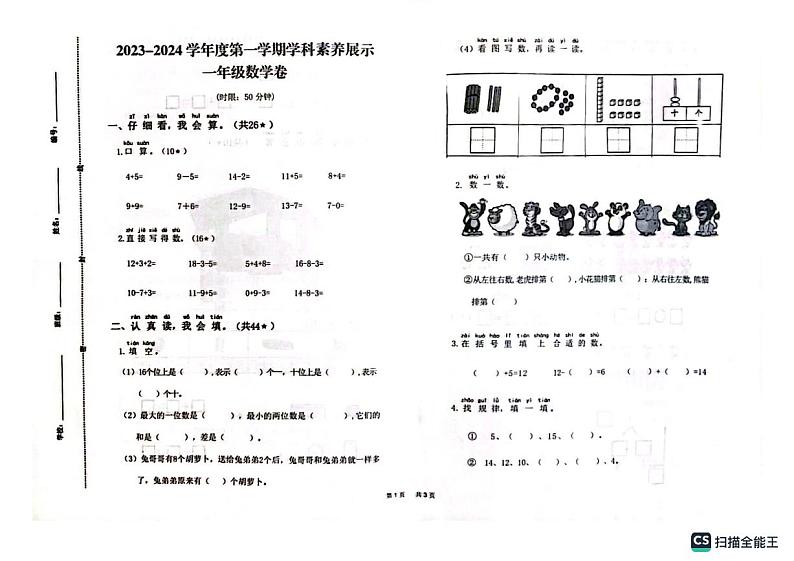 2023-2024 学年度第一学期学科素养展示
一年级数学卷
(时限：50 分钟)
编号：
姓名：
班级：
学校：
线
封
密
zǐ xì kàn wǒ huì suàn
一、仔细看，我会算。（共26★）
kǒu suàn
1.口 算。(10★)
4+5= 9－5= 14-2= 11+5= 8+4=
9+9= 7＋6= 12-9= 13-7= 7-0=
2.直接写得数。（16★）
12+3+2= 18-3-5= 5+4+8= 16-8-3=
10-7+3= 11-9+5= 0+9-3= 14-8-3=
rèn zhēn dú wǒ huì tián
二、认真读，我会填。（共44★）
tián kòng
1. 填 空。
（1）16个位上是（ ），表示（ ）个一，十位上是（ ），表示
（ ）个十。
（2）最大的一位数是（ ），最小的两位数是（ ），它们的
和是（ ），差是（ ）。
（3）兔哥哥有8个胡萝卜，送给兔弟弟2个后，兔哥哥和兔弟弟就一样多
了，兔弟弟原来有（ ）个胡萝卜。
第 1 页 共 3 页
kàn tú xiě shù zài dú yi dú
（4）看 图 写 数，再 读 一 读。
十 个
shǔ yi shǔ
2. 数 一 数。
①一共有（ ）只小动物。
②从左往右数,老虎排第（ ）,小花猫排第（ ）；从右往左数,熊猫
排第（ ）
zài kuò hào lǐ tián shàng hé shì de shù
3.在 括 号 里 填 上 合 适 的 数。
（ ）+5=12 12-（ ）=6 （ ）+（ ）=14
zhǎo guī lǜ tián yi tián
4. 找 规 律，填 一 填。
① 5、（ ）、15、（ ）。
② 14、12、10、（ ）、（ ）、4。
CS 扫描全能王